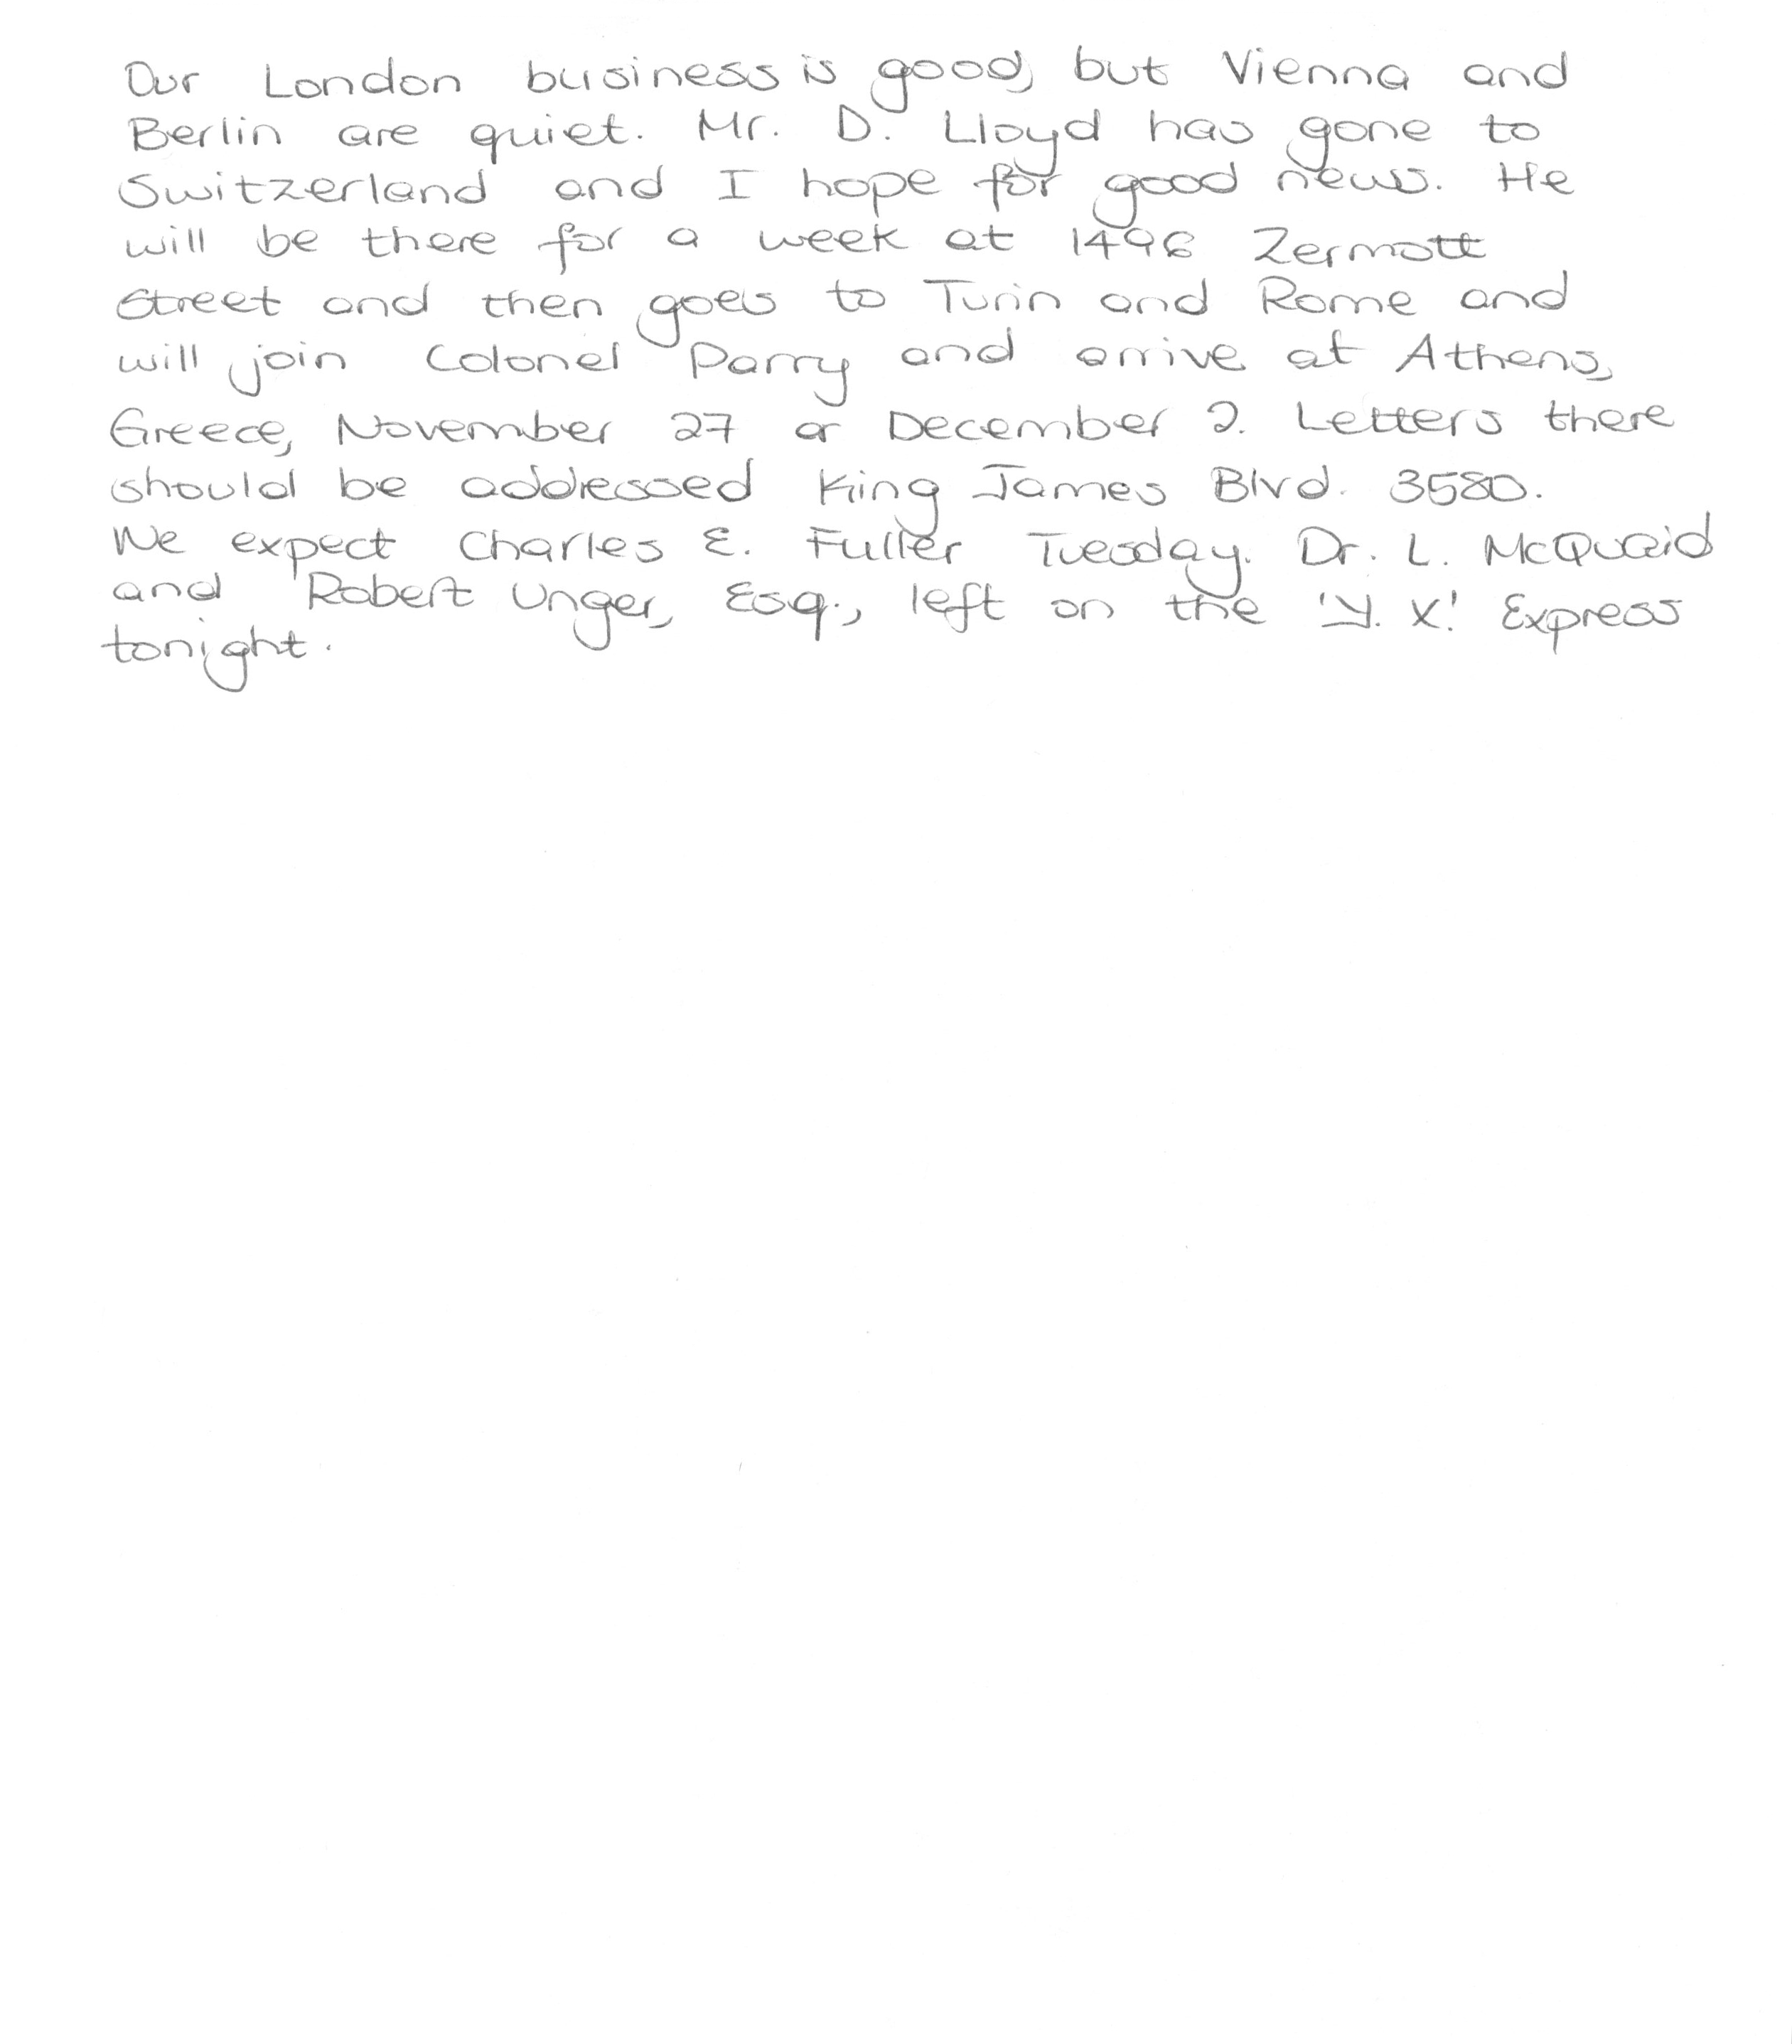 Our London business is good, but Vienna and
Berlin are quiet. Mr. D. Lloyd has gone to
Switzerland and I hope for good news. He
will be there for a week at 1496 Zermott
Street and then goes to Turin and Rome and
will join Colonel Parry and arrive at Athens,
Greece, November 27 or December 2. Letters there
should be addressed King James Blvd. 3580.
We expect Charles E. Fuller Tuesday. Dr. L. McQuaid
and Robert Unger, Esq., left on the 'Y. X.' Express
tonight.